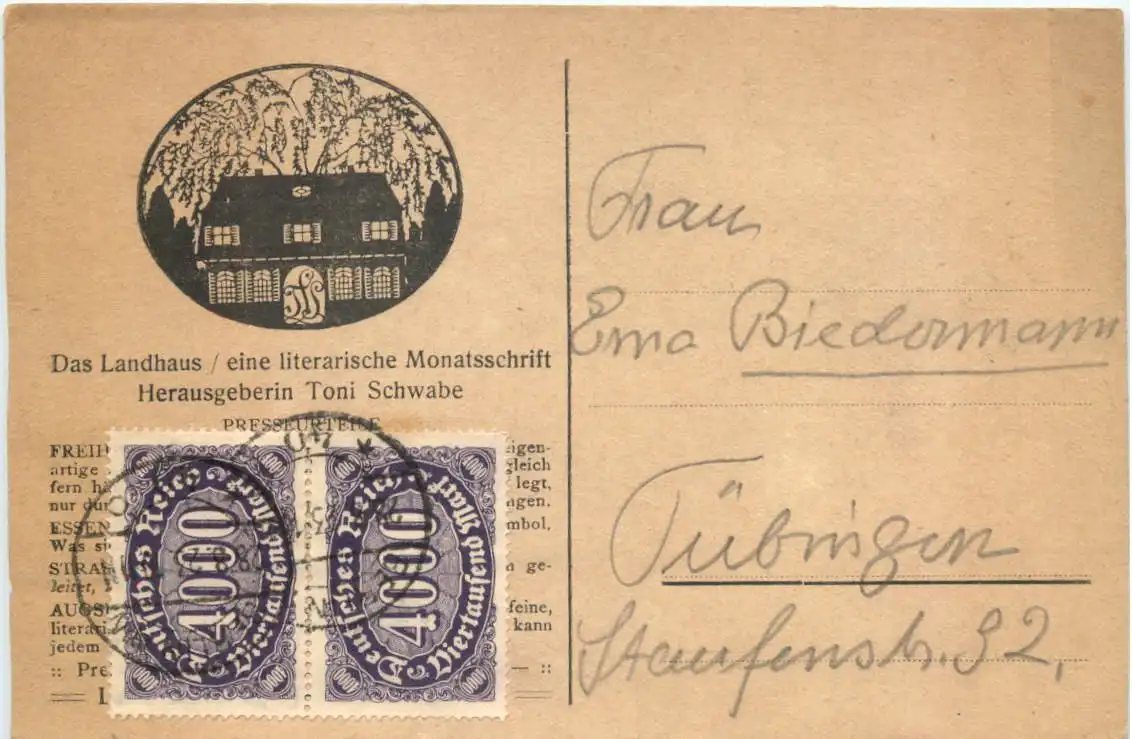 Das Landhaus / eine literarische Monatsschrift
Herausgeberin Toni Schwabe
PRESSEURTEILE
FREIH igen-
artige gleich
fern ha legt,
nur dur ngen.
ESSEN mbol,
Was si
STRA n ge-
leitet,
AUGS feine,
literari kann
jedem
:: Pre — ::
L
Deutsches Reich
4000
Viertausend Mark
Deutsches Reich
4000
Viertausend Mark
Frau
Erna Biedermann
Tübingen
Staufenstr. 32,